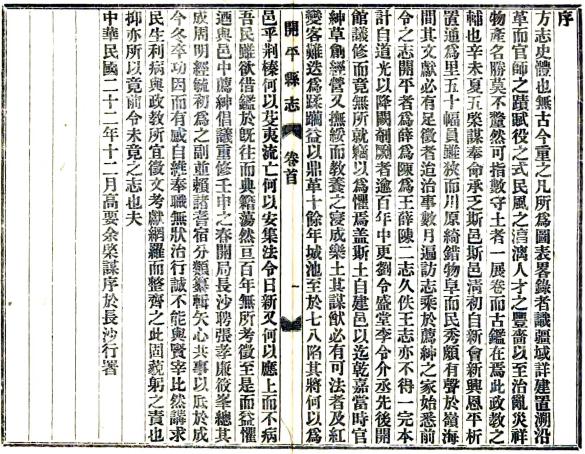 序
方志史體也無古今重之凡所爲圖表畧錄者識疆域詳建置溯沿
革而官師之蹟賦役之式民風之淳漓人才之豐嗇以至治亂災祥
物產名勝莫不釐然可指數守土者一展卷而古鑑在焉此政教之
輔也辛未夏五棨謀奉命承乏斯邑斯邑清初自新會新興恩平析
置通爲里五十幅員雖狹而川原綺錯物阜而民秀頗有聲於嶺海
間其文獻必有足徵者迨治事數月遍訪志乘於薦紳之家始悉前
令之志開平者爲薛爲陳爲王薛陳二志久佚王志亦不得一完本
計自道光以降闕剞劂者逾百年中更劉令盛堂李令介丞先後開
館議修而竟無所就竊以爲懼焉蓋斯土自建邑以迄乾嘉當時官
紳草創經營又撫綏而教養之寖成樂土其謀猷必有可法者及紅
變客難迭爲蹂躪益以鼎革十餘年城池至於七八陷其將何以爲
開平縣志 卷首 一
邑乎荆榛何以芟夷流亡何以安集法令日新又何以應上而不病
吾民雖欲借鑑於旣往而典籍蕩然亘百年無所考徵至是而益懼
迺與邑中薦紳倡議重修壬申之春開局長沙聘張孝廉筱峯總其
成周明經毓初爲之副並賴諸耆宿分類纂輯矢心共事以底於成
今冬卒功因而有感自維奉職無狀治行誠不能與賢宰比然講求
民生利病與政教所宜徵文考獻網羅而整齊之此固藐躬之責也
抑亦所以竟前令未竟之志也夫
中華民國二十二年十二月高要余棨謀序於長沙行署